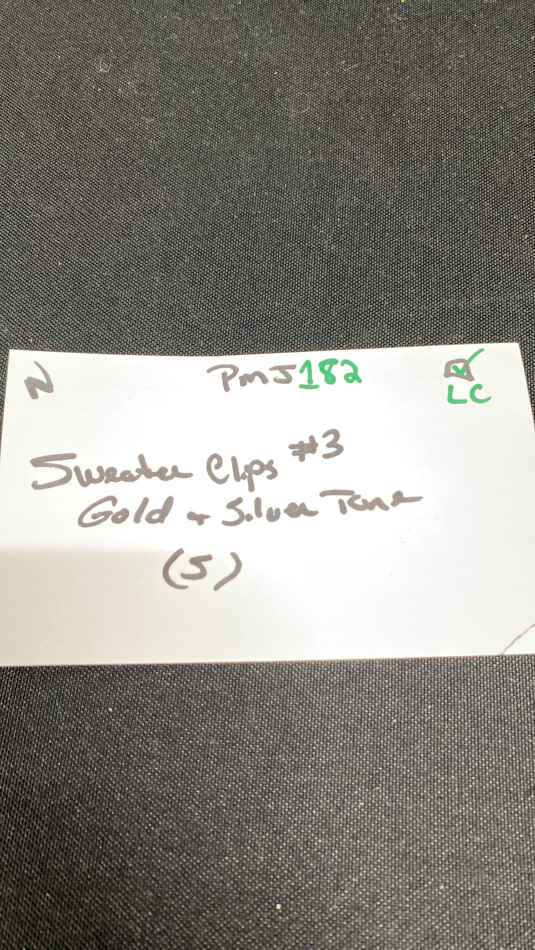 N PmJ182 ☑
LC
Sweater Clips #3
Gold + Silver Tone
(5)